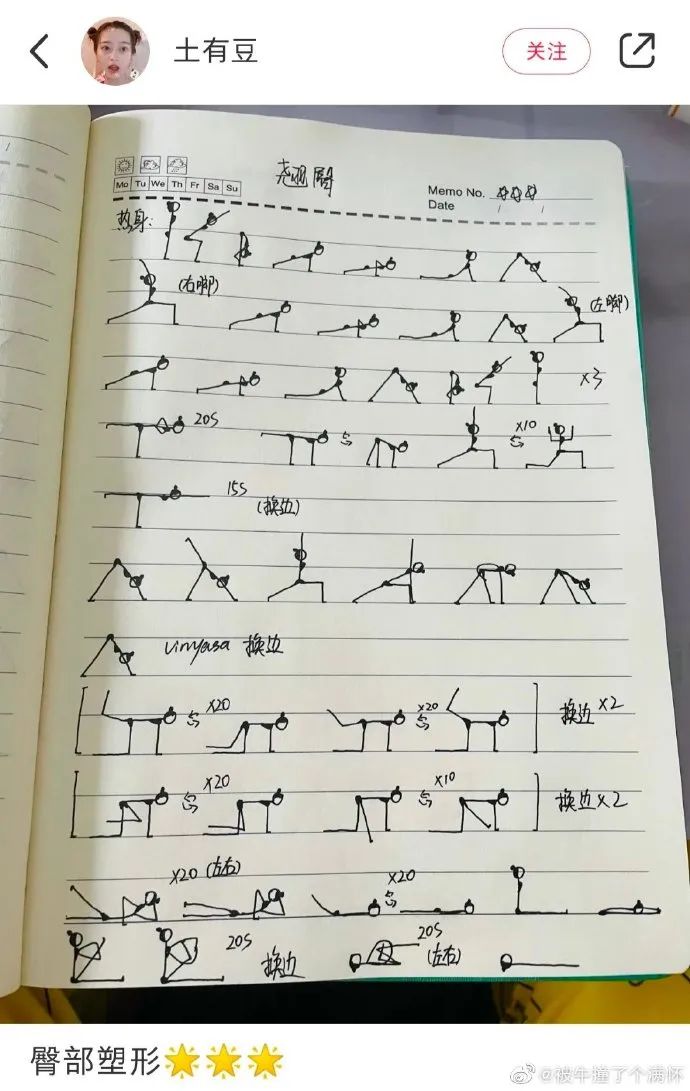 土有豆
关注
翘臀
Mo Tu We Th Fr Sa Su
Memo No.
Date / /
热身:
(右脚)
(左脚)
×3
20S
×10
15S
(换边)
vinyasa 换边
×20
×20
换边 ×2
×20
×10
换边×2
×20 (左右)
×20
20S
换边
20S
(左右)
臀部塑形
@被牛撞了个满怀